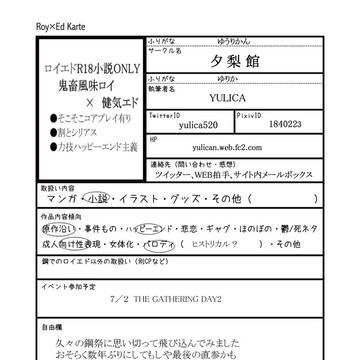 Roy×Ed Karte
ロイエドR18小説ONLY
鬼畜風味ロイ
× 健気エド
●そこそこコアプレイ有り
●割とシリアス
●力技ハッピーエンド主義
ふりがな ゆうりかん
サークル名
夕梨館
ふりがな ゆりか
執筆者名
YULICA
TwitterID
yulica520
PixivID
1840223
HP
yulican.web.fc2.com
連絡先（問い合わせ・感想）
ツイッター、WEB拍手、サイト内メールボックス
取扱い内容
マンガ・小説・イラスト・グッズ・その他（ ）
作品内容傾向
原作沿い・事件もの・ハッピーエンド・悲恋・ギャグ・ほのぼの・鬱/死ネタ
成人向け性表現・女体化・パロディ（ ヒストリカル？ ）・その他
鋼でのロイエド以外の取扱い（別CPなど）
イベント参加予定
7／2 THE GATHERING DAY2
自由欄
久々の鋼祭に思い切って飛び込んでみました
おそらく数年ぶりにしてもしや最後の直参かも